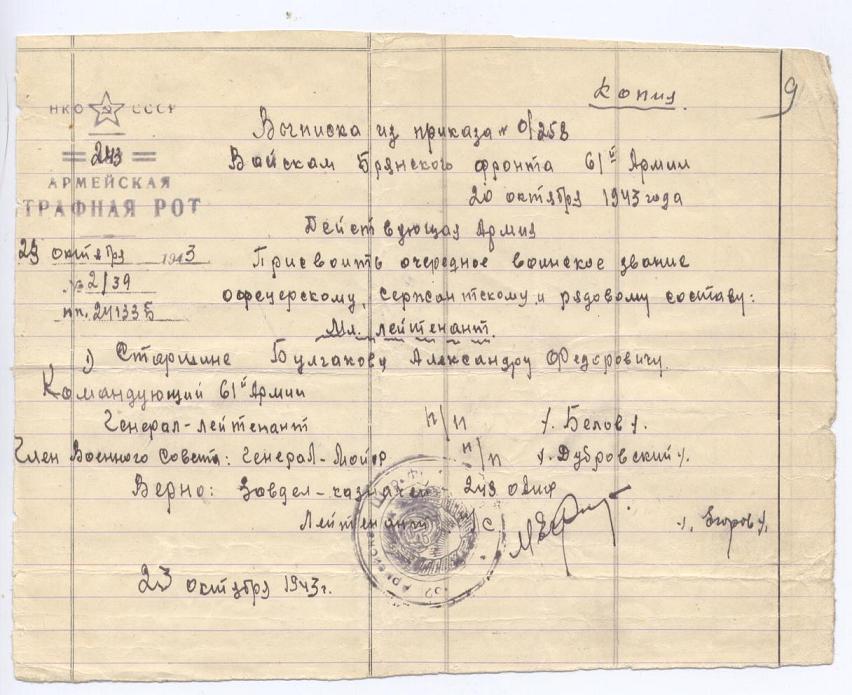 Копия.
9
НКО СССР
243
АРМЕЙСКАЯ
ТРАФНАЯ РОТ
23 октября 1943
№ 2/39
пп. 24133Б
Выписка из приказа № 0/258
Войскам Брянского фронта 61й Армии
20 октября 1943 года
Действующая Армия
Присвоить очередное воинское звание
офецерскому, сержантскому и рядовому составу:
Мл. лейтенант.
1) Старшине Булгакову Александру Федоровичу.
Командующий 61й Армии
Генерал-лейтенант п/п /. Белов /.
Член Военного Совета: Генерал-Майор п/п /. Дубровский /.
Верно: Завдел-казначей 243
Лейтенант /с/ /. Егоров /.
23 октября 1943г.